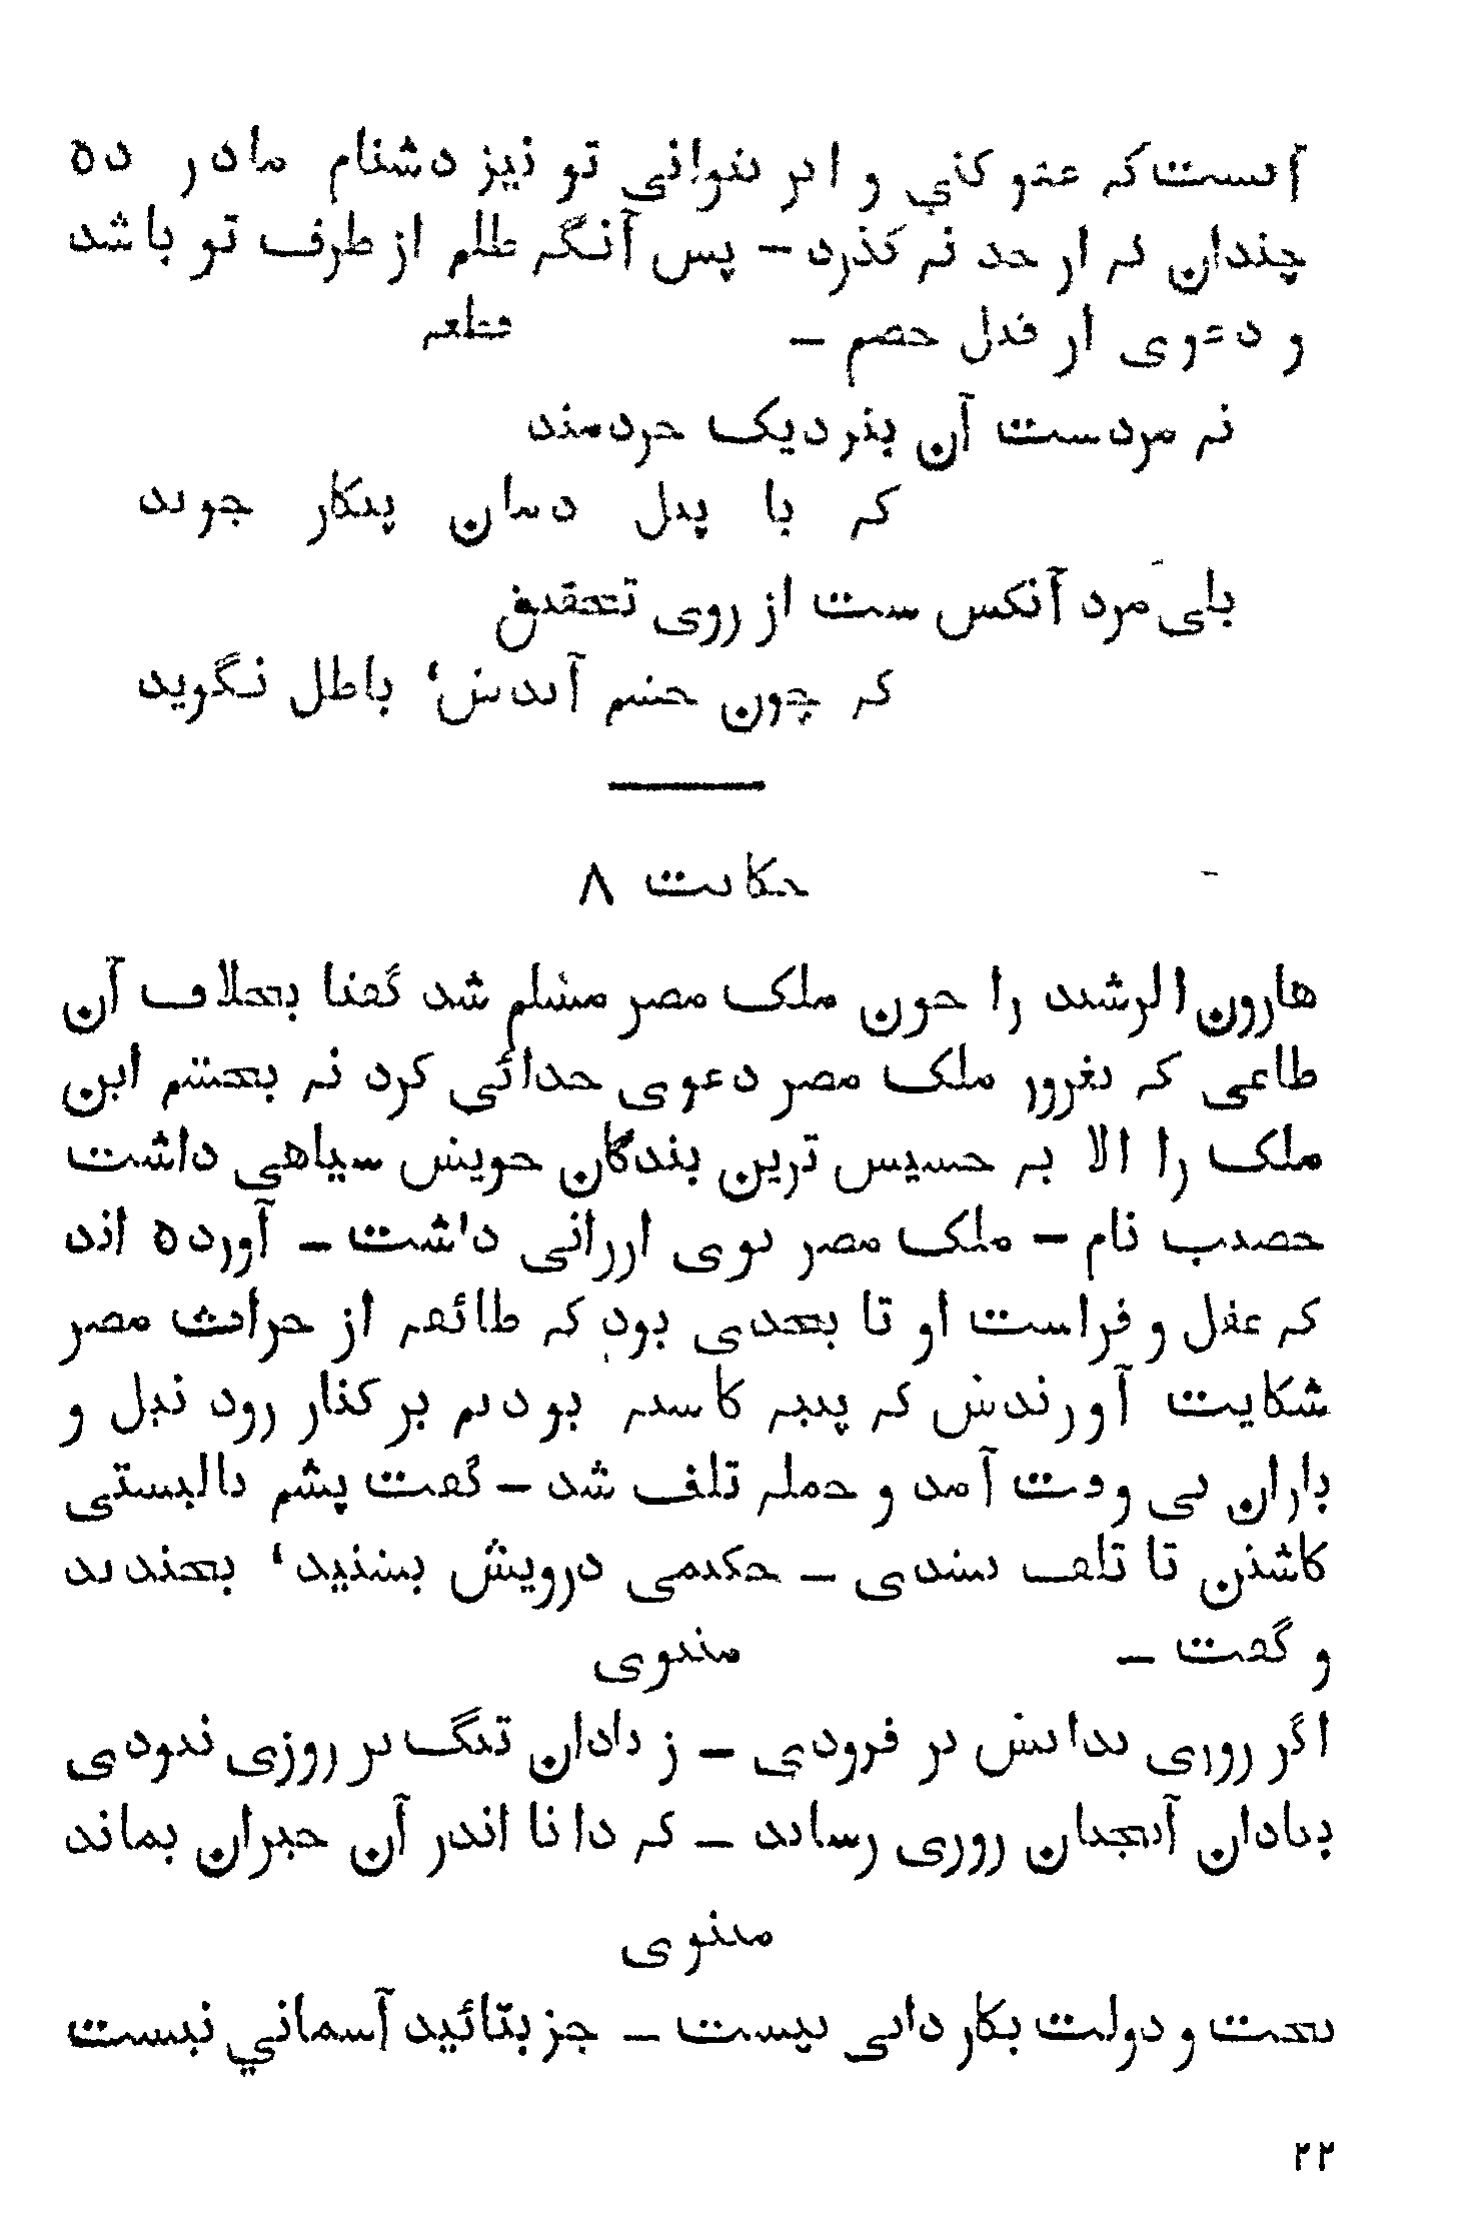 آنست که عفو کني و اگر نتوانی تو نیز دشنام مادر ده
چندان که از حد نه گذرد – پس آنگه ظلم از طرف تو باشد
و دعوی از قبل خصم –        قطعه
نه مردست آن بنزدیک خردمند
که با پیل دمان پیکار جوید
بلی مرد آنکس ست از روی تحقیق
که چون خشم آیدش، باطل نگوید
حکایت ۸
هارون الرشید را چون ملک مصر مسلم شد گفتا بخلاف آن
طاغی که بغرور ملک مصر دعوی خدائی کرد نه بخشم این
ملک را الا به خسیس ترین بندگان خویش سیاهی داشت
خصیب نام – ملک مصر بوی ارزانی داشت – آورده اند
که عقل و فراست او تا بحدی بود که طائفه از حراث مصر
شکایت آورندش که پنبه کاسته بودیم بر کنار رود نیل و
باران بی وقت آمد و جمله تلف شد – گفت پشم بالیستی
کاشتن تا تلف نشدی – حکیمی درویش بشنید، بخندید
و گفت –        مثنوی
اگر روزی بدانش بر فزودی – ز نادان تنگ تر روزی نبودی
بنادان آنچنان روزی رساند – که دانا اندر آن حیران بماند
مثنوی
بخت و دولت بکار دانی نیست – جز بتائید آسماني نیست
۲۲